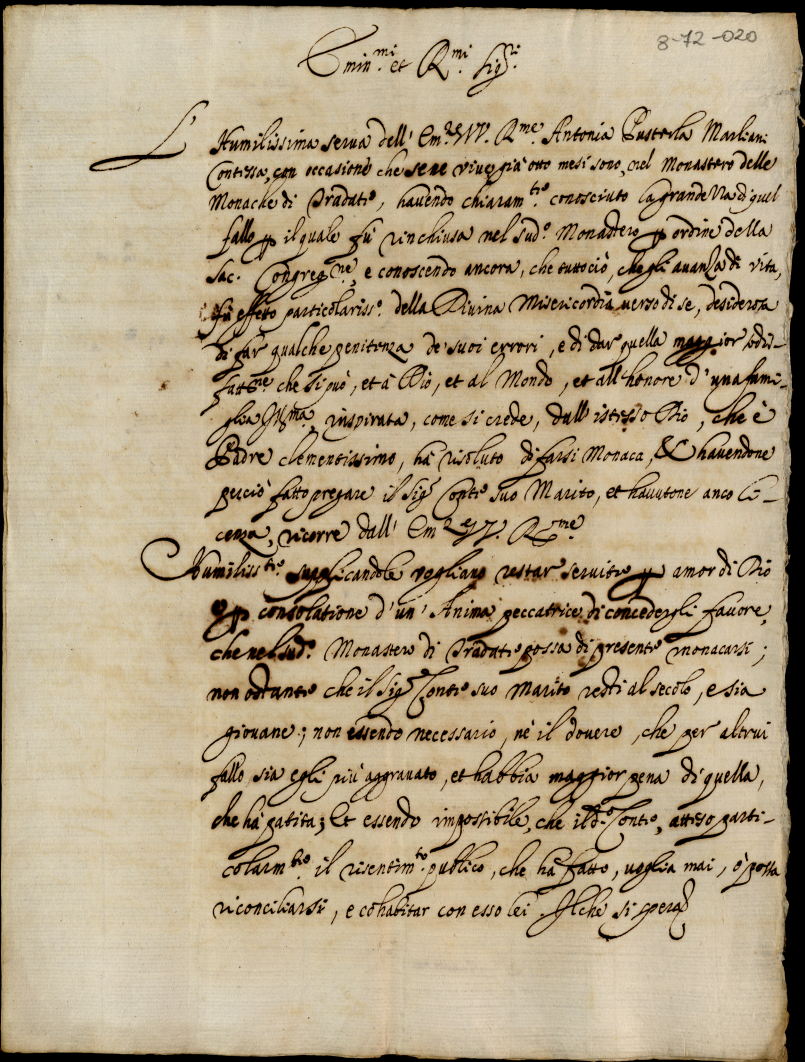 8-72-020
Emin.mi et R.mi Sig.ri
L'Humilissima serva dell' Em.ze VV. R.me Antonia Pusterla Marliani
Contessa, con occasione che sene vive già otto mesi sono, nel Monastero delle
Monache di Tradate, havendo chiaram.te conosciuto la grandezza di quel
fallo per il quale fù rinchiusa nel sud.o Monastero per ordine della
Sac. Congreg.ne, e conoscendo ancora, che tuttociò, che gli avanza di vita,
fù effetto particolariss.o della Divina Misericordia verso di se, desiderosa
di far qualche penitenza de suoi errori, e di dar quella maggior sodis-
fatt.ne che si può, et à Dio, et al Mondo, et all' honore d'una fami-
glia Ill.ma, inspirata, come si crede, dall' istesso Dio, che è
Padre clementissimo, hà risoluto di farsi Monaca, & havendone
perciò fatto pregare il Sig.r Conte suo Marito, et havutone anco li-
cenza, ricorre dall' Em.ze VV. R.me
Humiliss.te supplicandole vogliano restar servite per amor di Dio
e per consolatione d'un' Anima peccatrice di concedergli favore,
che nel sud.o Monastero di Tradate possa di presente monacarsi;
non ostante che il Sig.r Conte suo Marito resti al secolo, e sia
giovane; non essendo necessario, nè il dovere, che per altrui
fallo sia egli più aggravato, et habbia maggior pena di quella,
che hà patita; Et essendo impossibile, che il d.o Conte, atteso parti-
colarm.te il risentim.to publico, che hà fatto, voglia mai, ò possa
riconciliarsi, e cohabitar con esso lei. Il che si spera